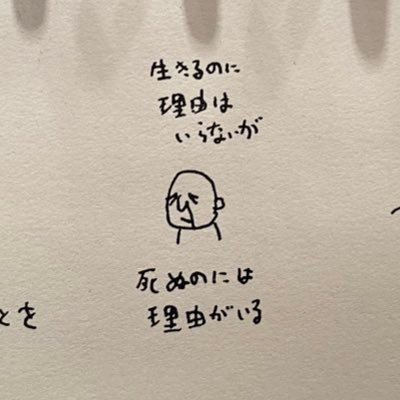 生きるのに
理由は
いらないが
死ぬのには
理由がいる
とを